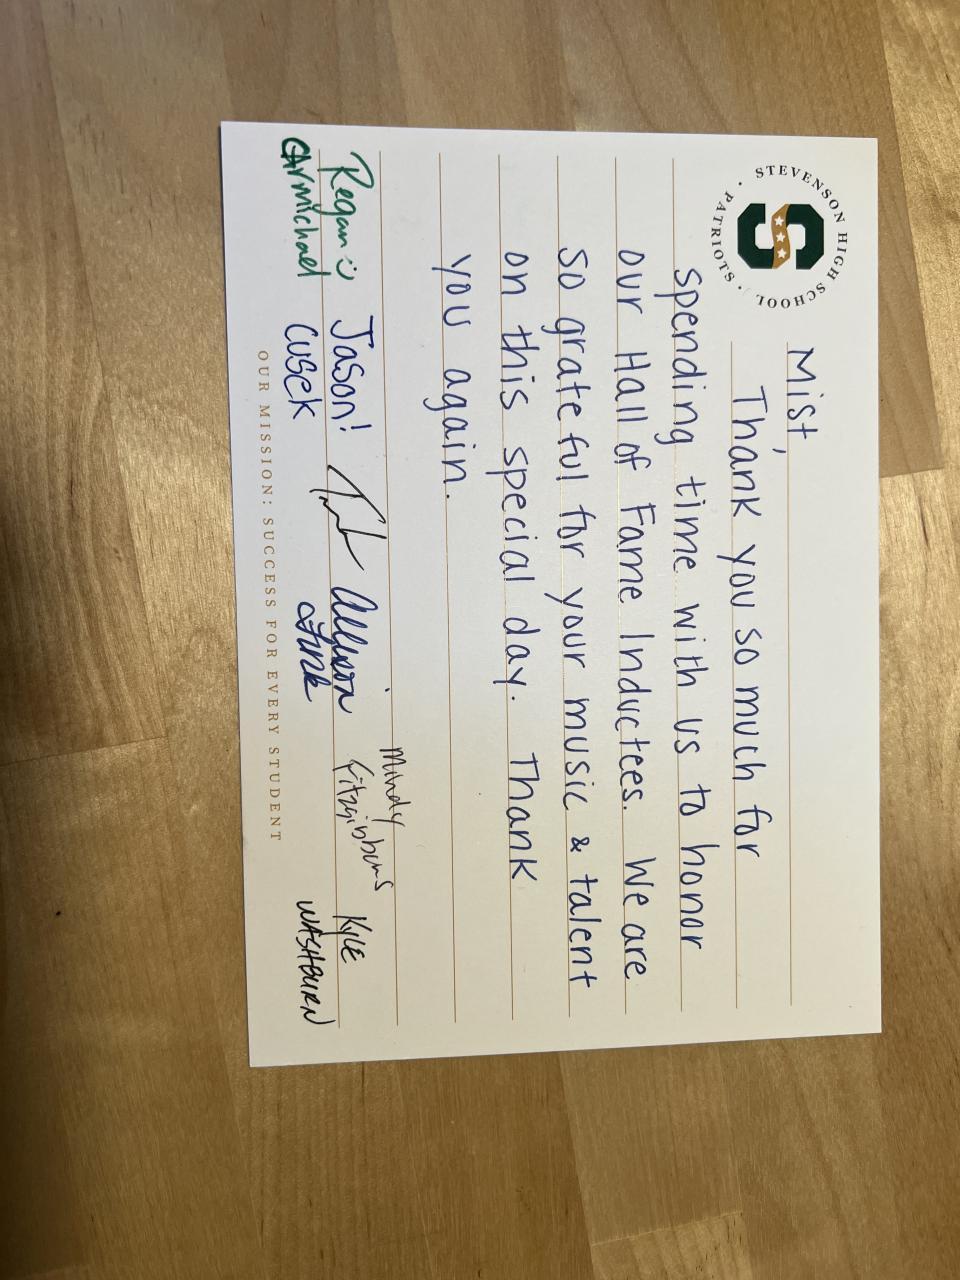 STEVENSON HIGH SCHOOL
• PATRIOTS •
S
Mist,
Thank you so much for
spending time with us to honor
our Hall of Fame Inductees. We are
so grateful for your music & talent
on this special day. Thank
you again.
Regan :)
CARmichael
Jason!
CUSEK
Allison
Funk
Mindy
Fitzgibbons
KYLE
WASHBURN
OUR MISSION: SUCCESS FOR EVERY STUDENT